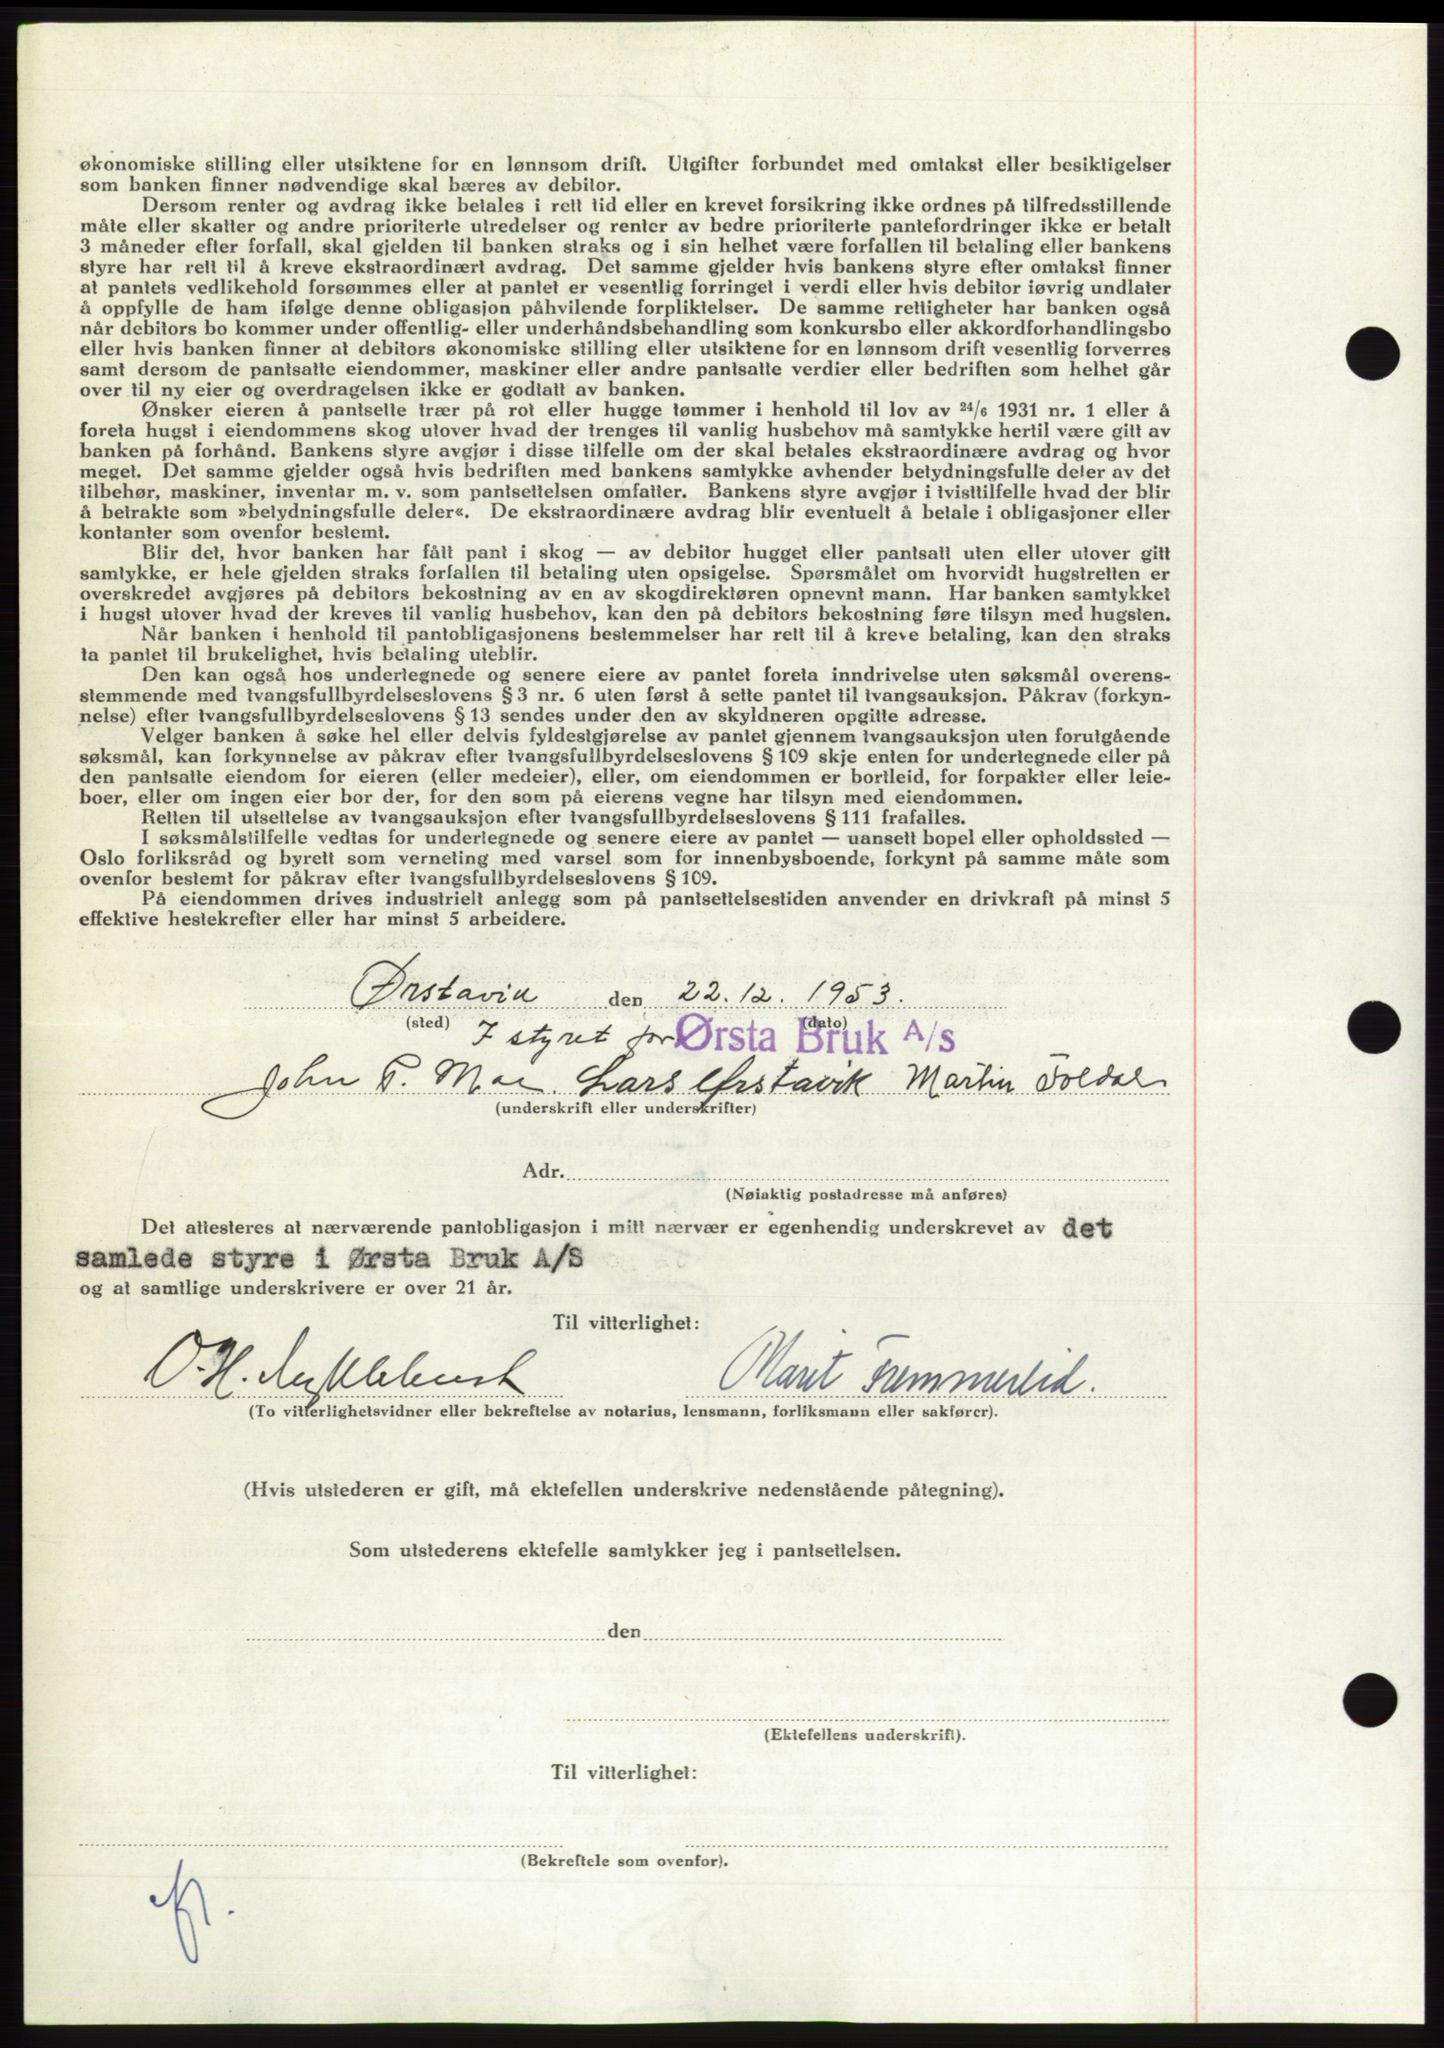 økonomiske stilling eller utsiktene for en lønnsom drift. Utgifter forbundet med omtakst eller besiktigelser
som banken finner nødvendige skal bæres av debitor.
Dersom renter og avdrag ikke betales i rett tid eller en krevet forsikring ikke ordnes på tilfredsstillende
måte eller skatter og andre prioriterte utredelser og renter av bedre prioriterte pantefordringer ikke er betalt
3 måneder efter forfall, skal gjelden til banken straks og i sin helhet være forfallen til betaling eller bankens
styre har rett til å kreve ekstraordinært avdrag. Det samme gjelder hvis bankens styre efter omtakst finner
at pantets vedlikehold forsømmes eller at pantet er vesentlig forringet i verdi eller hvis debitor iøvrig undlater
å oppfylle de ham ifølge denne obligasjon påhvilende forpliktelser. De samme rettigheter har banken også
når debitors bo kommer under offentlig- eller underhåndsbehandling som konkursbo eller akkordforhandlingsbo
eller hvis banken finner at debitors økonomiske stilling eller utsiktene for en lønnsom drift vesentlig forverres
samt dersom de pantsatte eiendommer, maskiner eller andre pantsatte verdier eller bedriften som helhet går
over til ny eier og overdragelsen ikke er godtatt av banken.
Ønsker eieren å pantsette trær på rot eller hugge tømmer i henhold til lov av 24/6 1931 nr. 1 eller å
foreta hugst i eiendommens skog utover hvad der trenges til vanlig husbehov må samtykke hertil være gitt av
banken på forhånd. Bankens styre avgjør i disse tilfelle om der skal betales ekstraordinære avdrag og hvor
meget. Det samme gjelder også hvis bedriften med bankens samtykke avhender betydningsfulle deler av det
tilbehør, maskiner, inventar m. v. som pantsettelsen omfatter. Bankens styre avgjør i tvisttilfelle hvad der blir
å betrakte som »betydningsfulle deler«. De ekstraordinære avdrag blir eventuelt å betale i obligasjoner eller
kontanter som ovenfor bestemt.
Blir det, hvor banken har fått pant i skog — av debitor hugget eller pantsatt uten eller utover gitt
samtykke, er hele gjelden straks forfallen til betaling uten opsigelse. Spørsmålet om hvorvidt hugstretten er
overskredet avgjøres på debitors bekostning av en av skogdirektøren opnevnt mann. Har banken samtykket
i hugst utover hvad der kreves til vanlig husbehov, kan den på debitors bekostning føre tilsyn med hugsten.
Når banken i henhold til pantobligasjonens bestemmelser har rett til å kreve betaling, kan den straks
ta pantet til brukelighet, hvis betaling uteblir.
Den kan også hos undertegnede og senere eiere av pantet foreta inndrivelse uten søksmål overens-
stemmende med tvangsfullbyrdelseslovens § 3 nr. 6 uten først å sette pantet til tvangsauksjon. Påkrav (forkyn-
nelse) efter tvangsfullbyrdelseslovens § 13 sendes under den av skyldneren opgitte adresse.
Velger banken å søke hel eller delvis fyldestgjørelse av pantet gjennem tvangsauksjon uten forutgående
søksmål, kan forkynnelse av påkrav efter tvangsfullbyrdelseslovens § 109 skje enten for undertegnede eller på
den pantsatte eiendom for eieren (eller medeier), eller, om eiendommen er bortleid, for forpakter eller leie-
boer, eller om ingen eier bor der, for den som på eierens vegne har tilsyn med eiendommen.
Retten til utsettelse av tvangsauksjon efter tvangsfullbyrdelseslovens § 111 frafalles.
I søksmålstilfelle vedtas for undertegnede og senere eiere av pantet — uansett bopel eller opholdssted —
Oslo forliksråd og byrett som verneting med varsel som for innenbysboende, forkynt på samme måte som
ovenfor bestemt for påkrav efter tvangsfullbyrdelseslovens § 109.
På eiendommen drives industrielt anlegg som på pantsettelsestiden anvender en drivkraft på minst 5
effektive hestekrefter eller har minst 5 arbeidere.
Ørstavik den 22.12. 1953.
(sted) (dato)
I styret for Ørsta Bruk A/S
John P. Moe. Lars Ørstavik Martin Foldal
(underskrift eller underskrifter)
Adr.
(Nøiaktig postadresse må anføres)
Det attesteres at nærværende pantobligasjon i mitt nærvær er egenhendig underskrevet av det
samlede styre i Ørsta Bruk A/S
og at samtlige underskrivere er over 21 år.
Til vitterlighet:
O. H. Myklebust Marit Tremmerlid.
(To vitterlighetsvidner eller bekreftelse av notarius, lensmann, forliksmann eller sakfører).
(Hvis utstederen er gift, må ektefellen underskrive nedenstående påtegning).
Som utstederens ektefelle samtykker jeg i pantsettelsen.
den
(Ektefellens underskrift).
Til vitterlighet:
(Bekreftele som ovenfor).